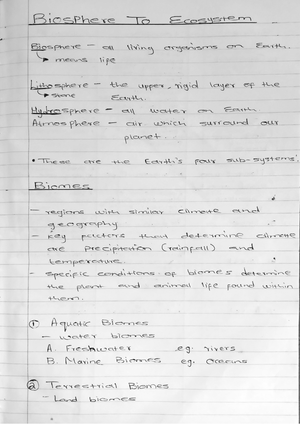 Biosphere To Ecosystem
Biosphere - all living organisms on Earth.
↳ means life
Lithosphere - the upper, rigid layer of the
↳ stone Earth.
Hydrosphere - all water on Earth
Atmosphere - air which surround our
planet.
• These are the Earth's four sub-systems.
Biomes
- regions with similar climate and
geography
- Key factors that determine climate
are precipitation (rainfall) and
temperature
- Specific conditions of biomes determine
the plant and animal life found within
them.
① Aquatic Biomes
- water biomes
A. Freshwater eg. rivers
B. Marine Biomes eg. Oceans
② Terrestrial Biomes
- Land biomes